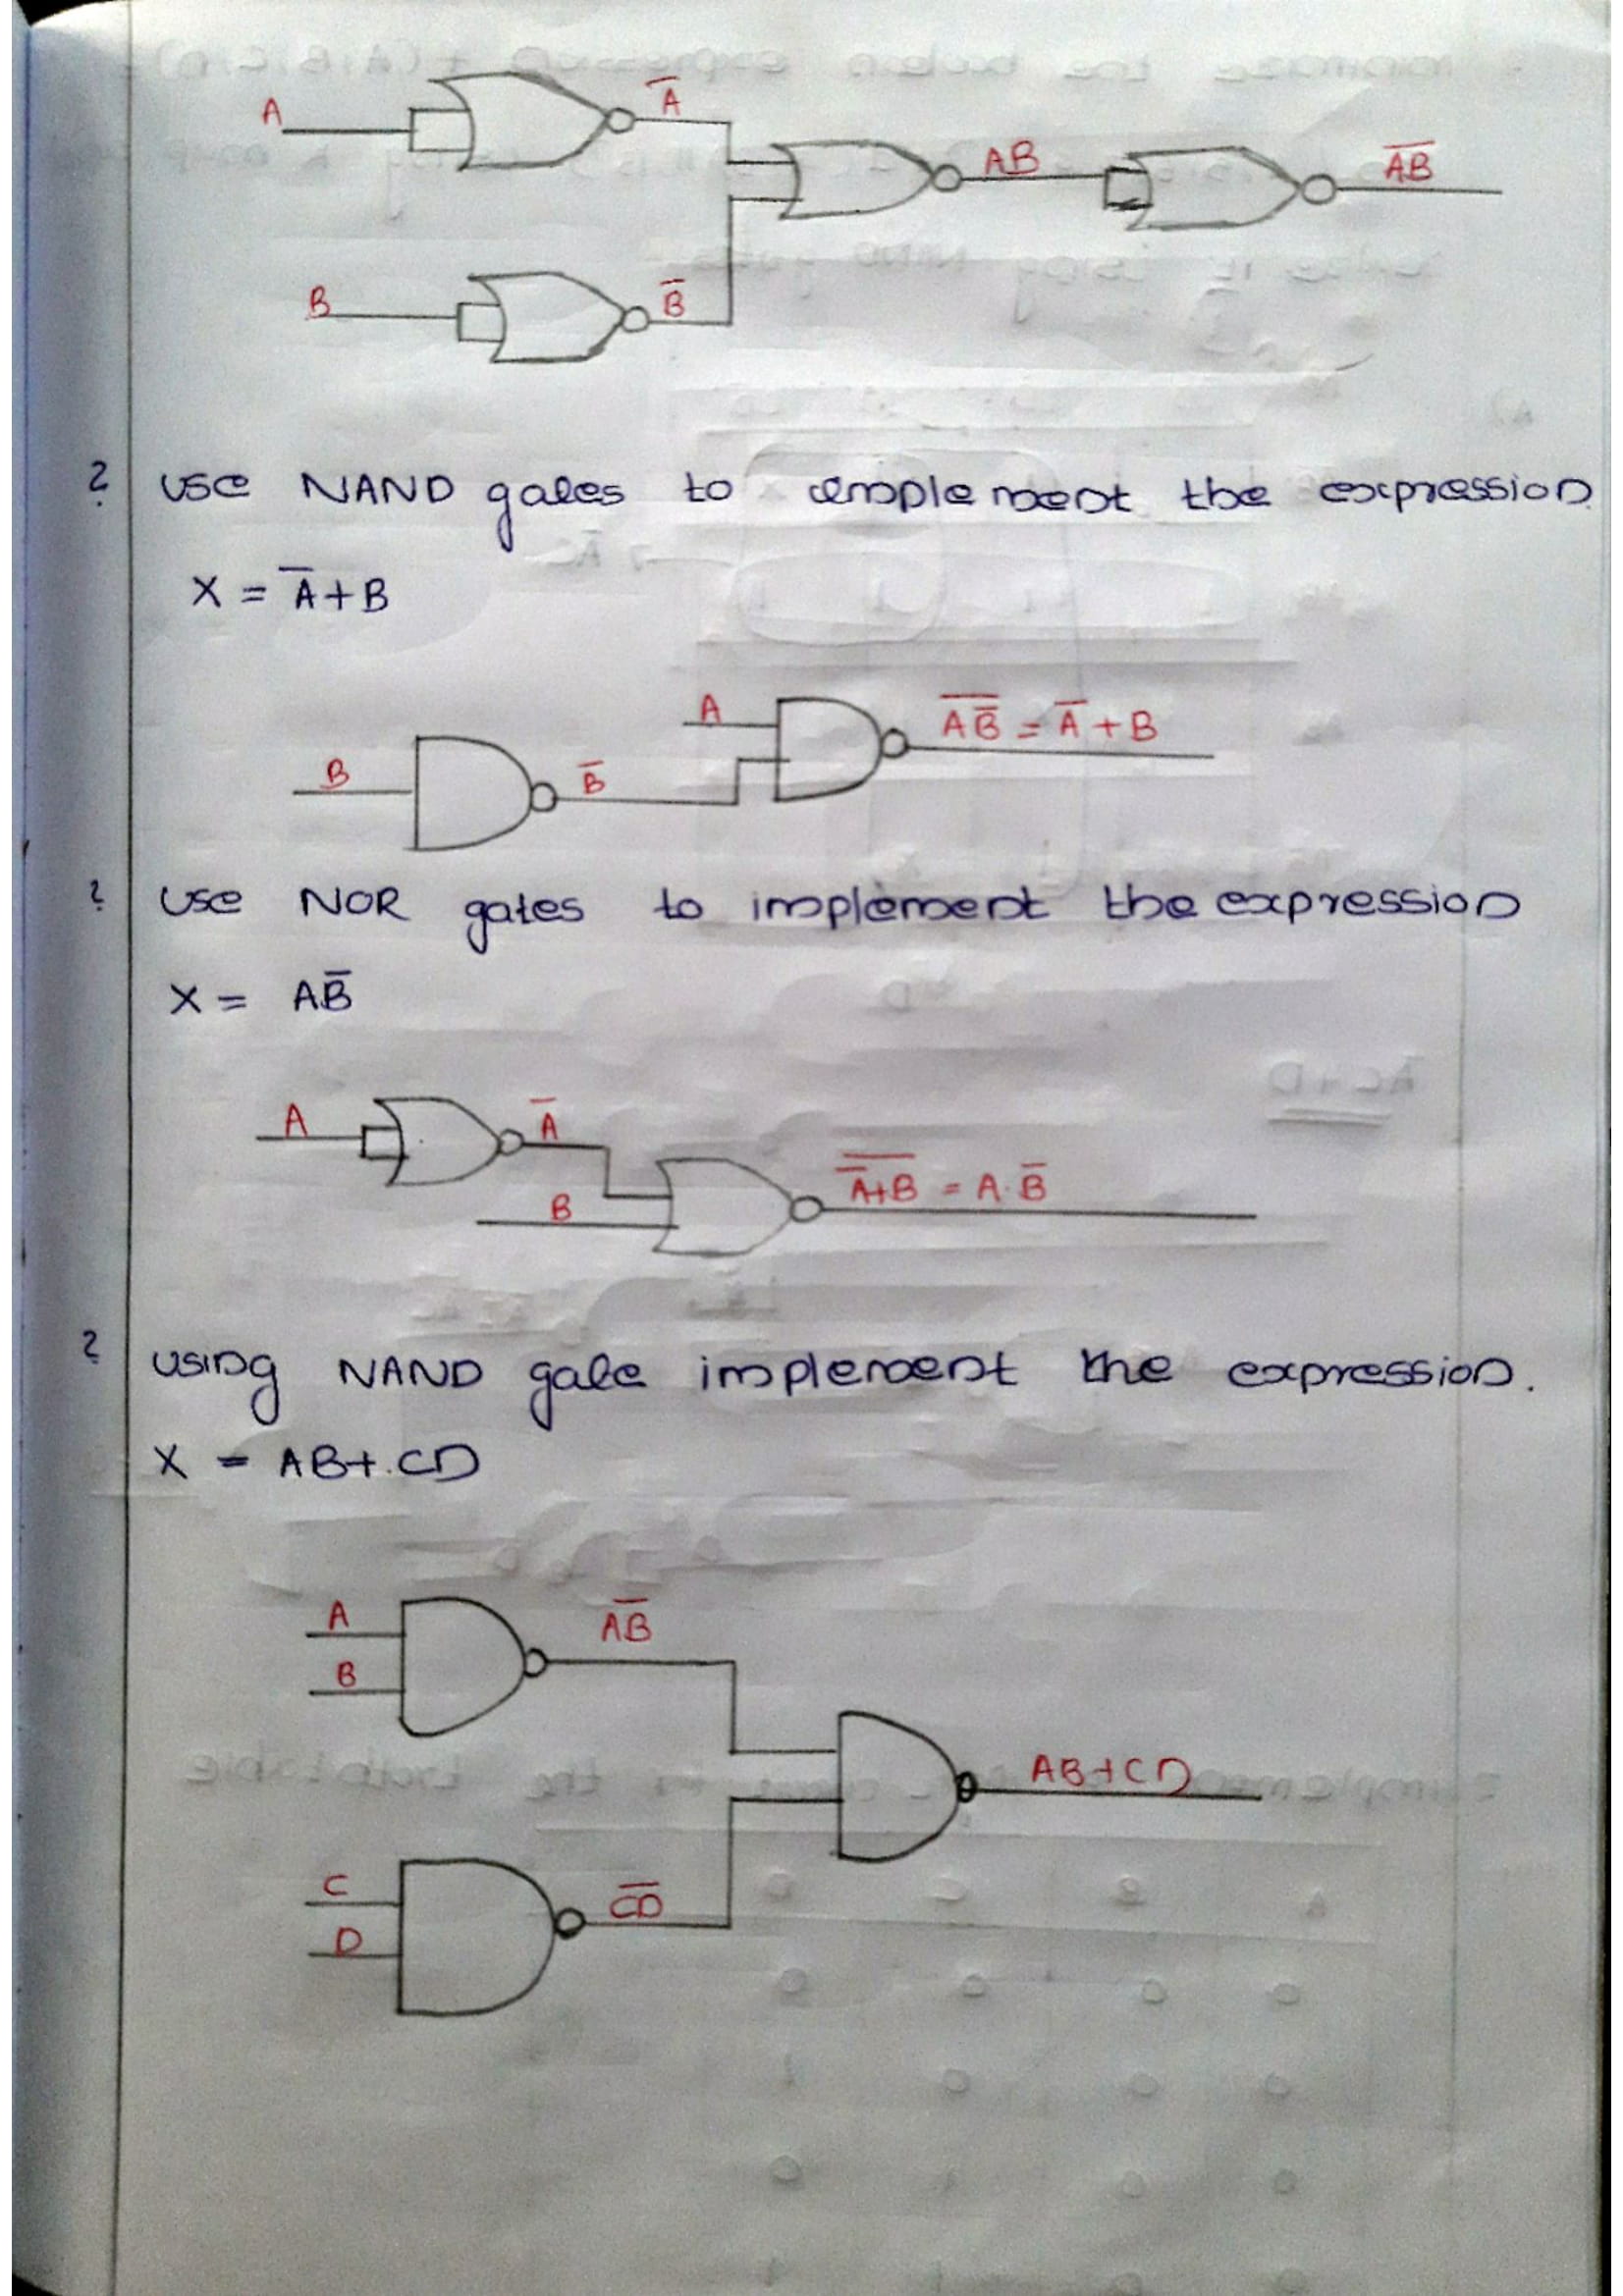 A
A̅
AB
A̅B̅
B
B̅
? Use NAND gates to implement the expression.
X = A̅+B
A
A̅B̅̅ = A̅ + B
B
B̅
? Use NOR gates to implement the expression
X = AB̅
A
A̅
A̅̅+̅B̅ = A·B̅
B
? using NAND gate implement the expression.
X = AB+CD
A
A̅B̅
B
AB+CD
C
C̅D̅
D